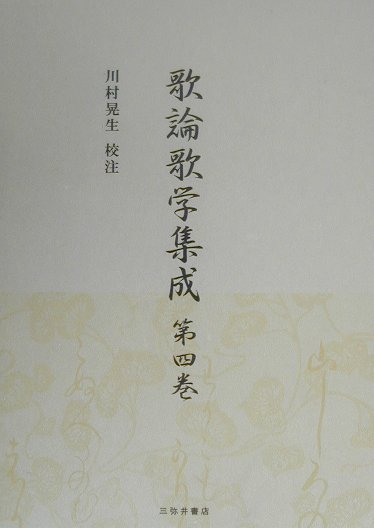 歌論歌学集成 第四巻
川村晃生 校注
三弥井書店